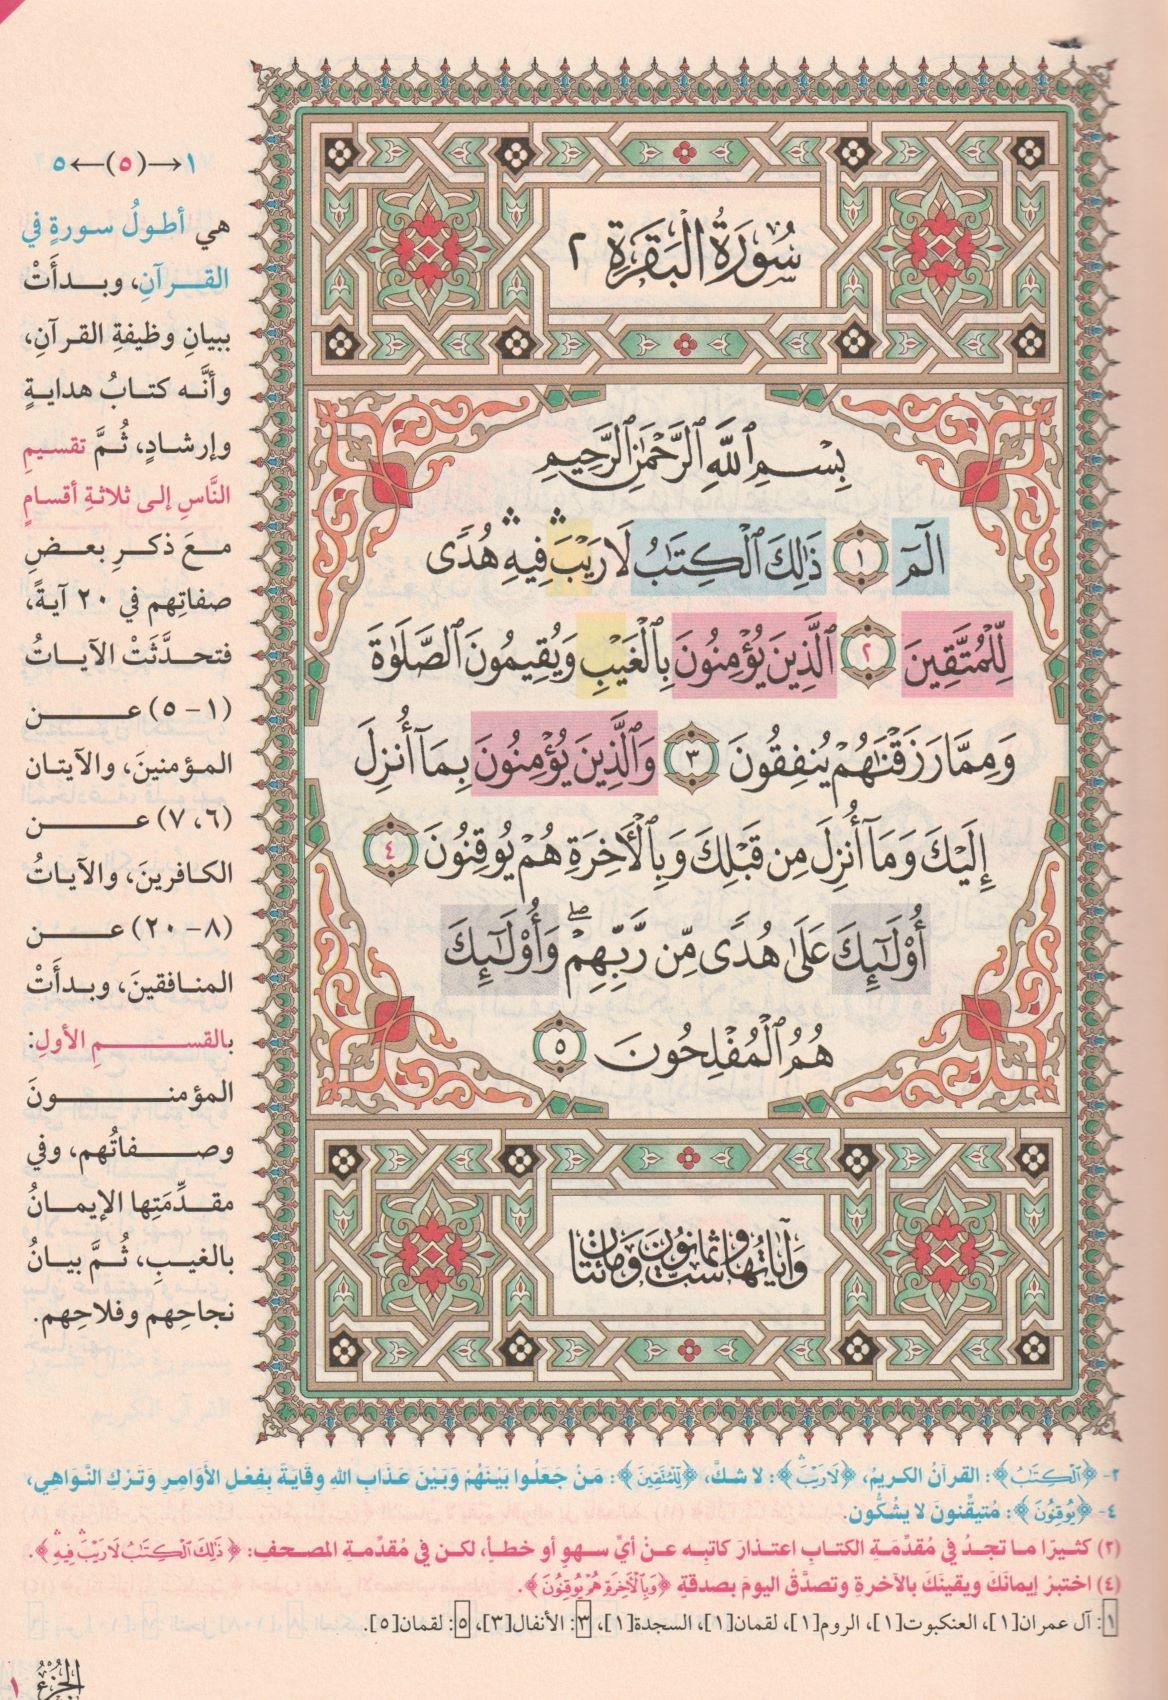 سُورَةُ البَقَرَةِ ٢
بِسْمِ ٱللَّهِ ٱلرَّحْمَٰنِ ٱلرَّحِيمِ
الٓمٓ ١ ذَٰلِكَ ٱلْكِتَٰبُ لَا رَيْبَ ۛ فِيهِ ۛ هُدًى
لِّلْمُتَّقِينَ ٢ ٱلَّذِينَ يُؤْمِنُونَ بِٱلْغَيْبِ وَيُقِيمُونَ ٱلصَّلَوٰةَ
وَمِمَّا رَزَقْنَٰهُمْ يُنفِقُونَ ٣ وَٱلَّذِينَ يُؤْمِنُونَ بِمَآ أُنزِلَ
إِلَيْكَ وَمَآ أُنزِلَ مِن قَبْلِكَ وَبِٱلْأَخِرَةِ هُمْ يُوقِنُونَ ٤
أُو۟لَٰٓئِكَ عَلَىٰ هُدًى مِّن رَّبِّهِمْ ۖ وَأُو۟لَٰٓئِكَ
هُمُ ٱلْمُفْلِحُونَ ٥
وَآيَاتُهَا سِتٌّ وَثَمَانُونَ وَمِائَتَانِ
١→(٥)←٥
هي أطولُ سورةٍ في
القرآنِ، وبدأَتْ
ببيانِ وظيفةِ القرآنِ،
وأنَّه كتابُ هدايةٍ
وإرشادٍ، ثُمَّ تقسيمِ
النَّاسِ إلى ثلاثةِ أقسامٍ
معَ ذكرِ بعضِ
صفاتِهم في ٢٠ آيةً،
فتحدَّثَتْ الآياتُ
(١-٥) عن
المؤمنينَ، والآيتان
(٦، ٧) عن
الكافرينَ، والآياتُ
(٨-٢٠) عن
المنافقينَ، وبدأَتْ
بالقسمِ الأولِ:
المؤمنونَ
وصفاتُهم، وفي
مقدِّمَتِها الإيمانُ
بالغيبِ، ثُمَّ بيانُ
نجاحِهم وفلاحِهم.
٢- ﴿ٱلْكِتَٰبُ﴾: القرآنُ الكريمُ، ﴿لَا رَيْبَ ۛ﴾: لا شكَّ، ﴿لِّلْمُتَّقِينَ﴾: مَنْ جَعَلُوا بَيْنَهُمْ وَبَيْنَ عَذَابِ اللهِ وِقَايَةً بِفِعْلِ الأَوَامِرِ وَتَرْكِ النَّوَاهِي،
٤- ﴿يُوقِنُونَ﴾: مُتيقِّنونَ لا يشكُّون.
(٢) كثيرًا ما تجدُ في مُقدِّمَةِ الكتابِ اعتذارَ كاتبِه عنْ أيِّ سهوٍ أو خطأٍ، لكن في مُقدِّمةِ المصحف: ﴿ذَٰلِكَ ٱلْكِتَٰبُ لَا رَيْبَ ۛ فِيهِ ۛ﴾.
(٤) اختبرْ إيمانَكَ ويقينَكَ بالآخرةِ وتصدَّقْ اليومَ بصدقةٍ ﴿وَبِٱلْأَخِرَةِ هُمْ يُوقِنُونَ﴾.
١: آل عمران[١]، العنكبوت[١]، الروم[١]، لقمان[١]، السجدة[١]، ٣: الأنفال[٣]، ٥: لقمان[٥].
الجُزْءُ ١